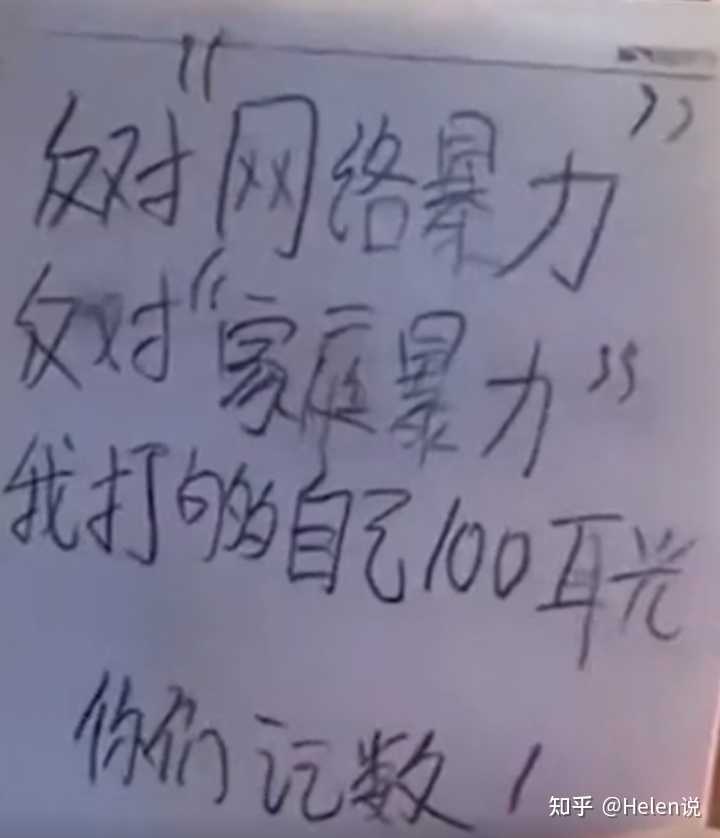 反对“网络暴力”
反对“家庭暴力”
我打够自己100耳光
你们记数！
知乎 @Helen说